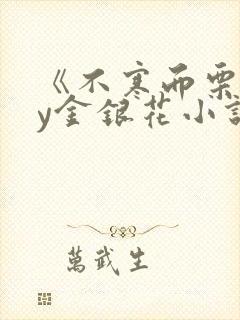 《不寒而栗
y金银花小說
萬武生